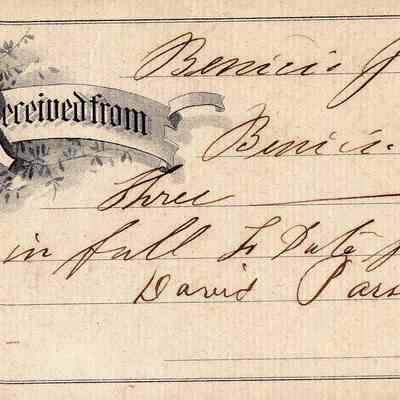 Benicia J
Received from
Benicia
Three
in full to Date f
David Pars